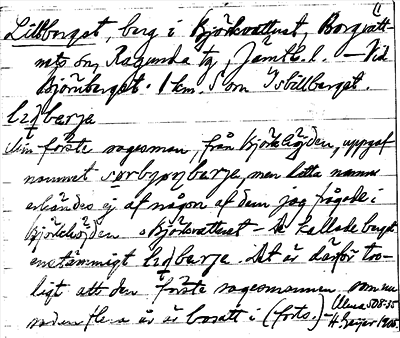 Lillberget, berg i Björkvattnet, Borgvatt-
nets sn, Ragunda tg, Jämtl. l. – Vid
Björnberget. 1 km. S om Isbillberget.
barje
Min förste sagesman, från Björkhöjden, uppgaf
namnet men detta namn
erkändes ej af någon af dem jag frågade i
Björkhöjden o Björkvattnet – de kallade berget
enstämmigt barje. Det är därför tro-
ligt att den förste sagesmannen som nu
sedan flera år är bosatt i (forts.)
Ulma 508:55
H. Geijer 1908.